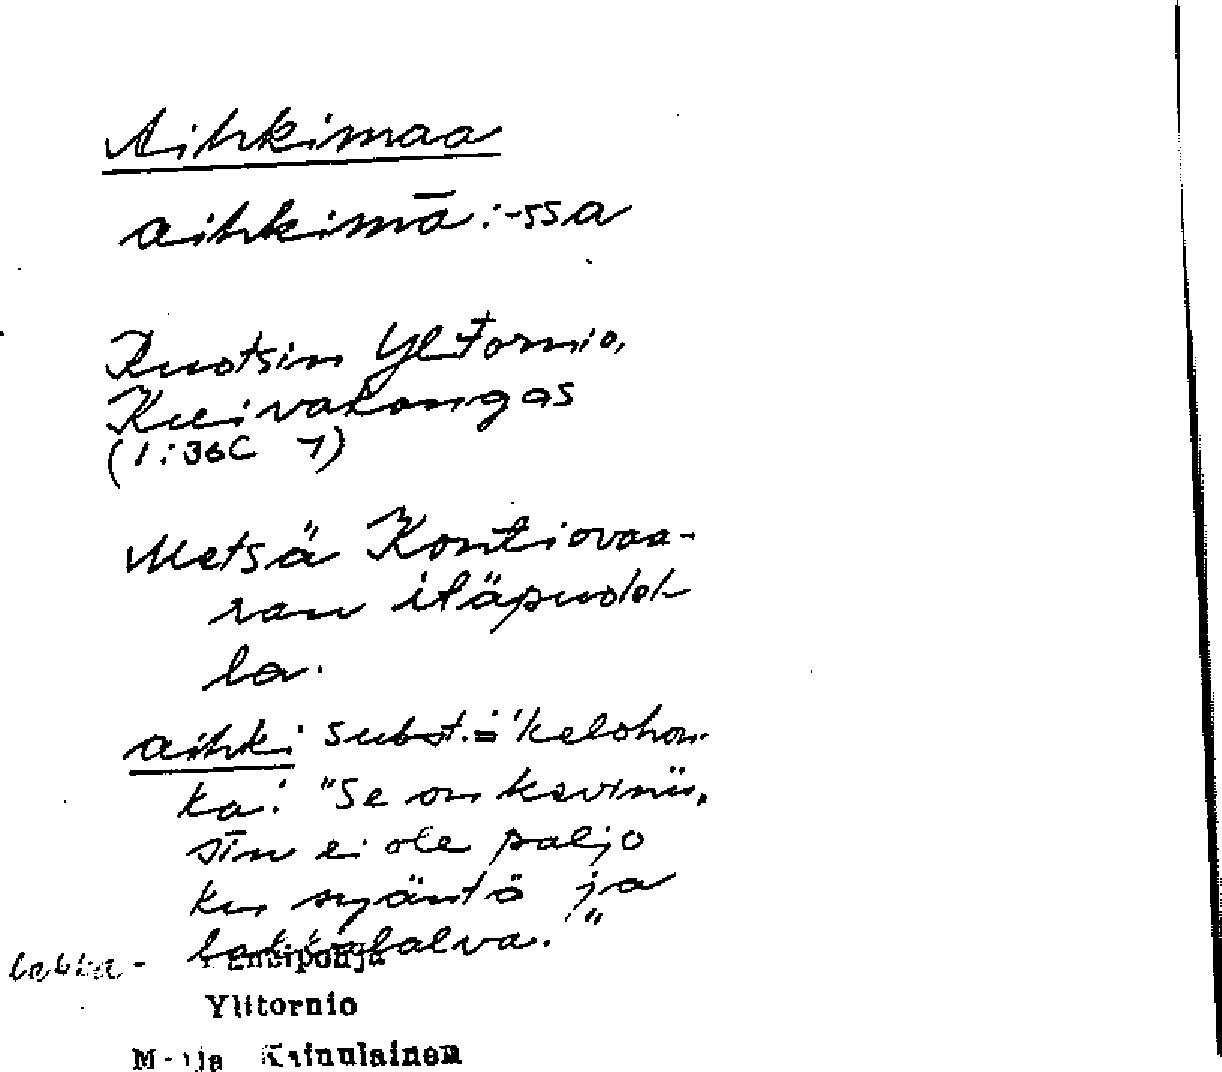 Aihkimaa
aihkimā: -ssa
Ruotsin Ylitornio,
Kuivakangas
(1:36C 7)
Metsä Kontiovaa-
ran itäpuolel-
la.
aihki subst. = 'kelohon-
ka': "Se on
sīn ei ole paljo
ku syäntä ja
lakka- latva."
Ensipohja
Ylitornio
Kainulainen